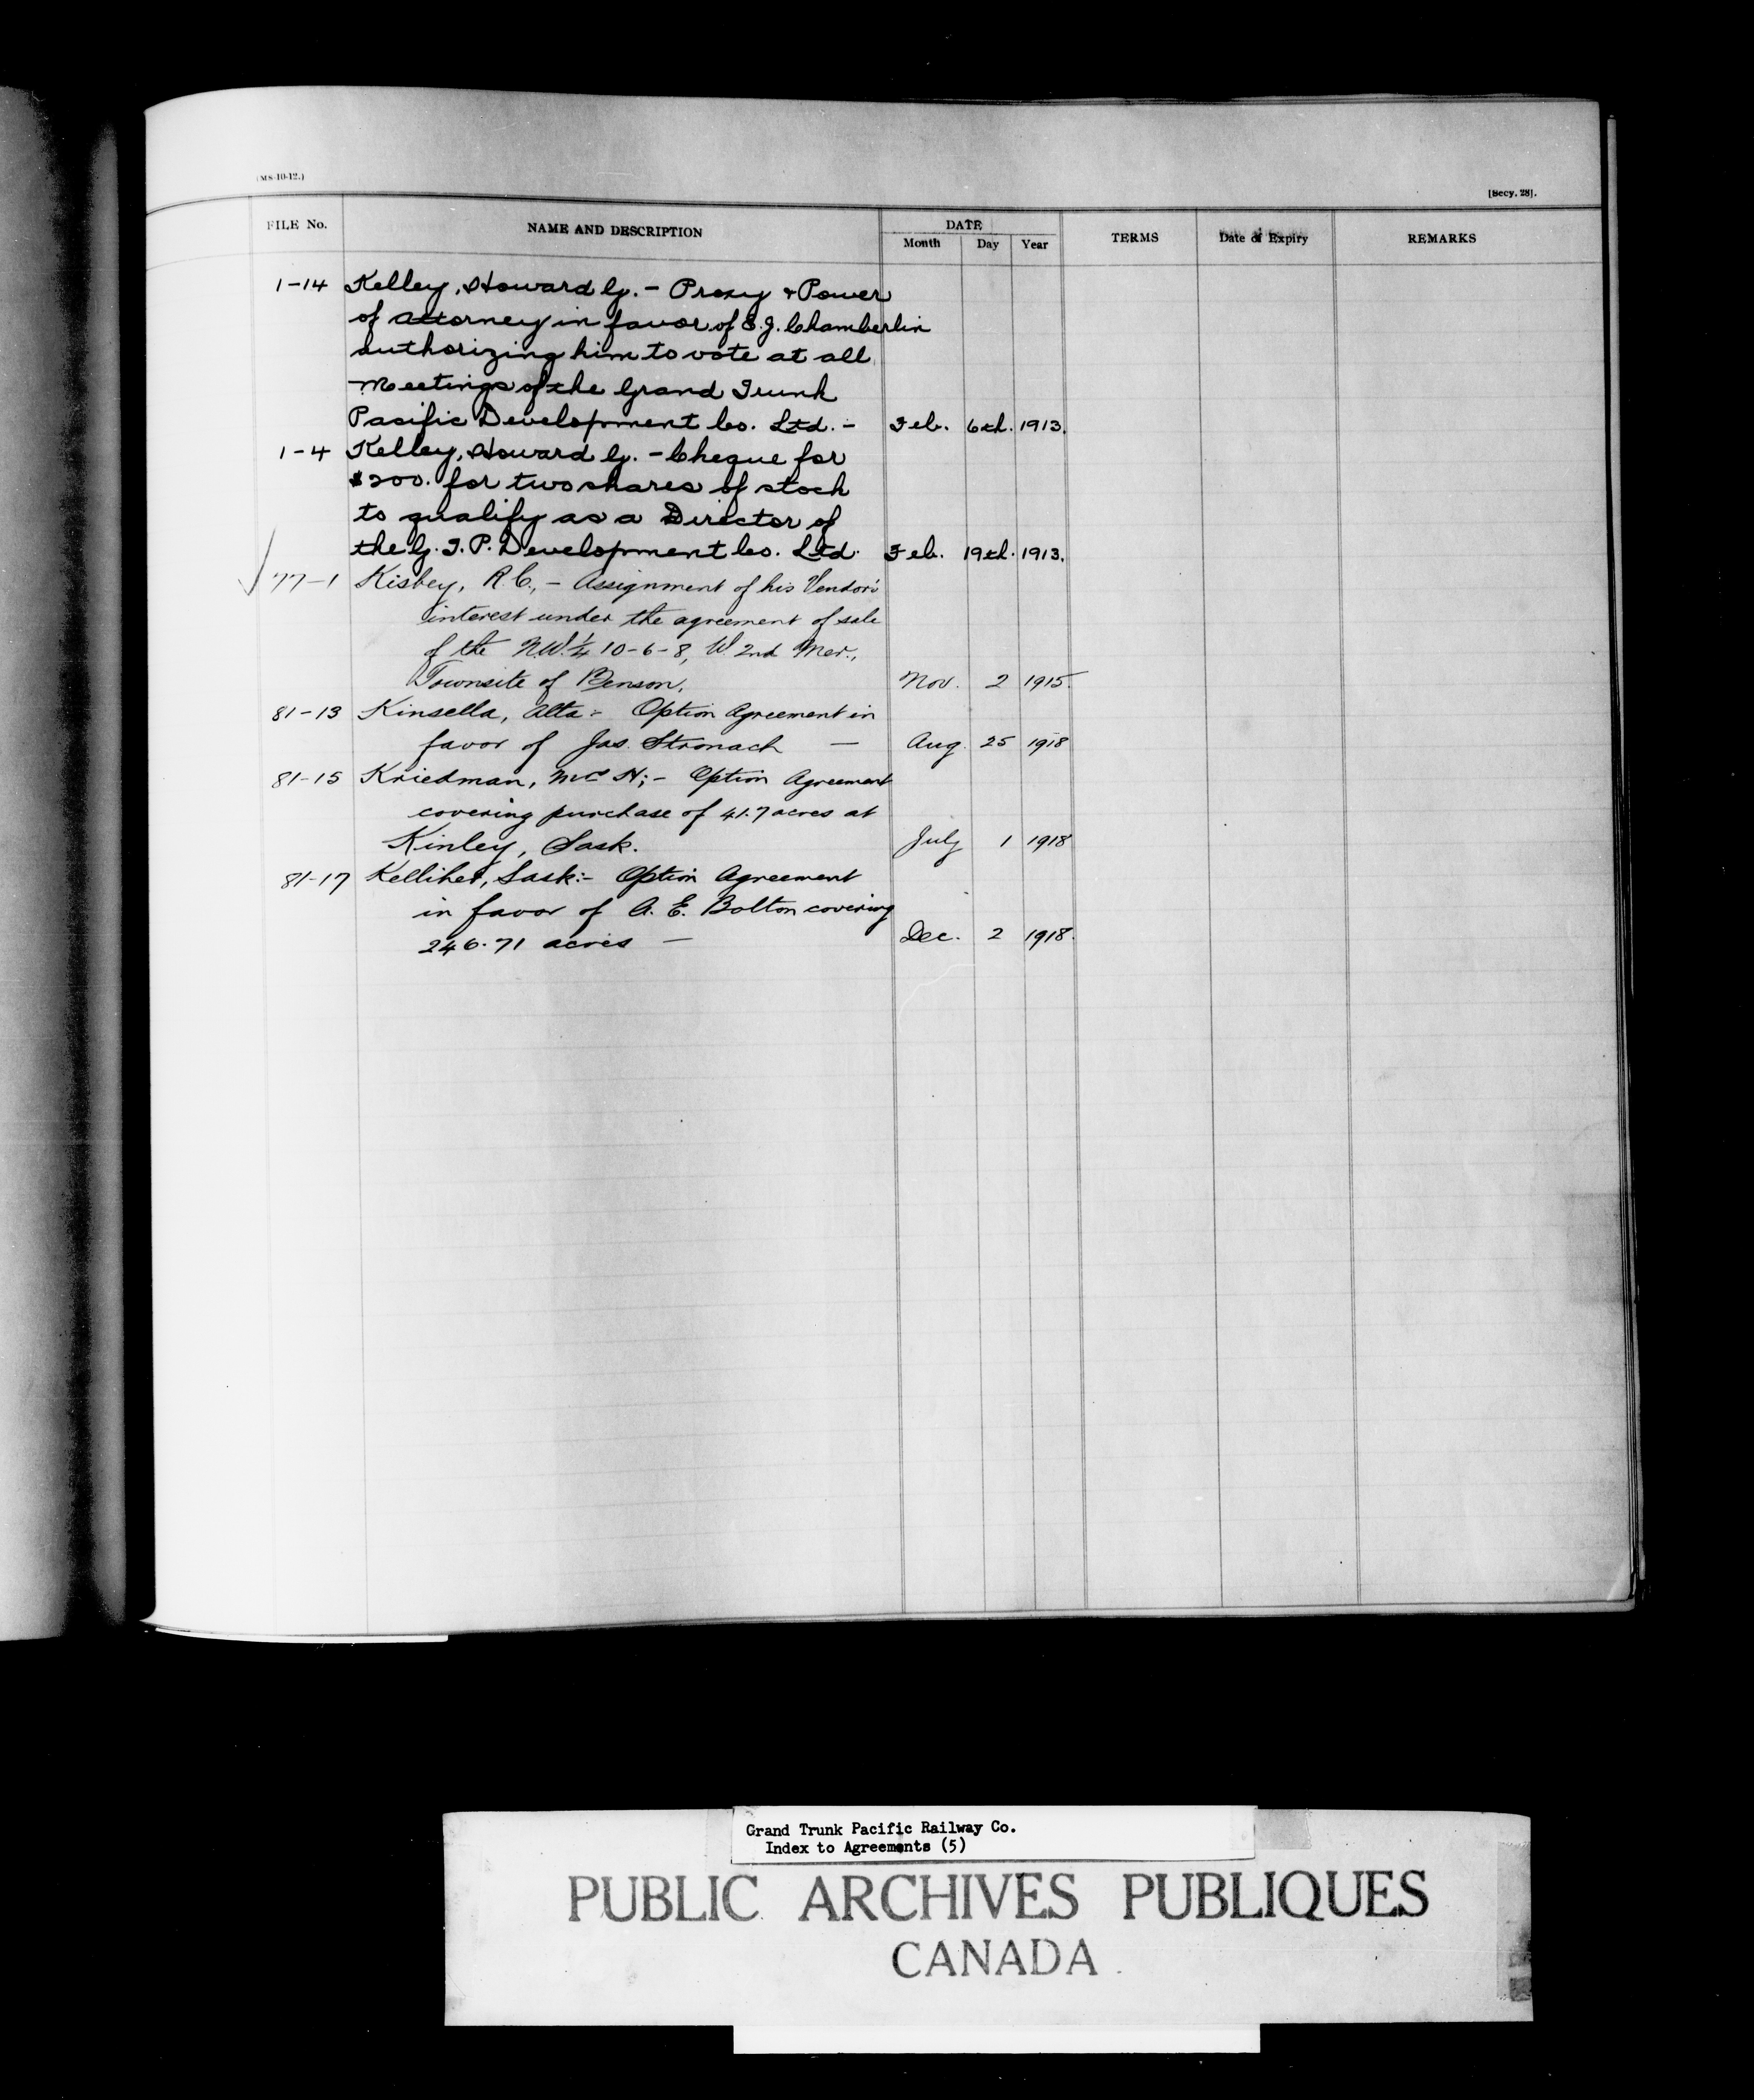 (MS-10-12.)
[Secy. 28].
FILE No. NAME AND DESCRIPTION DATE TERMS Date of Expiry REMARKS
Month Day Year
1-14 Kelley, Howard G. - Proxy & Power
of Attorney in favor of E.J. Chamberlin
authorizing him to vote at all
Meetings of the Grand Trunk
Pacific Development Co. Ltd. - Feb. 6th. 1913.
1-4 Kelley, Howard G. - Cheque for
$200. for two shares of stock
to qualify as a Director of
the G.T.P. Development Co. Ltd. Feb. 19th. 1913.
77-1 Kisbey, R.C., - Assignment of his Vendor's
interest under the agreement of sale
of the N.W. 1/4 10-6-8, W. 2nd Mer.,
Townsite of Benson. Nov. 2 1915.
81-13 Kinsella, Alta:- Option Agreement in
favor of Jas. Stronach — Aug. 25 1918
81-15 Kriedman, H:- Option Agreement
covering purchase of 41.7 acres at
Kinley, Sask. July 1 1918
81-17 Kelliher, Sask:- Option Agreement
in favor of A. E. Bolton covering
246.71 acres — Dec. 2 1918.
Grand Trunk Pacific Railway Co.
Index to Agreements (5)
PUBLIC ARCHIVES PUBLIQUES
CANADA